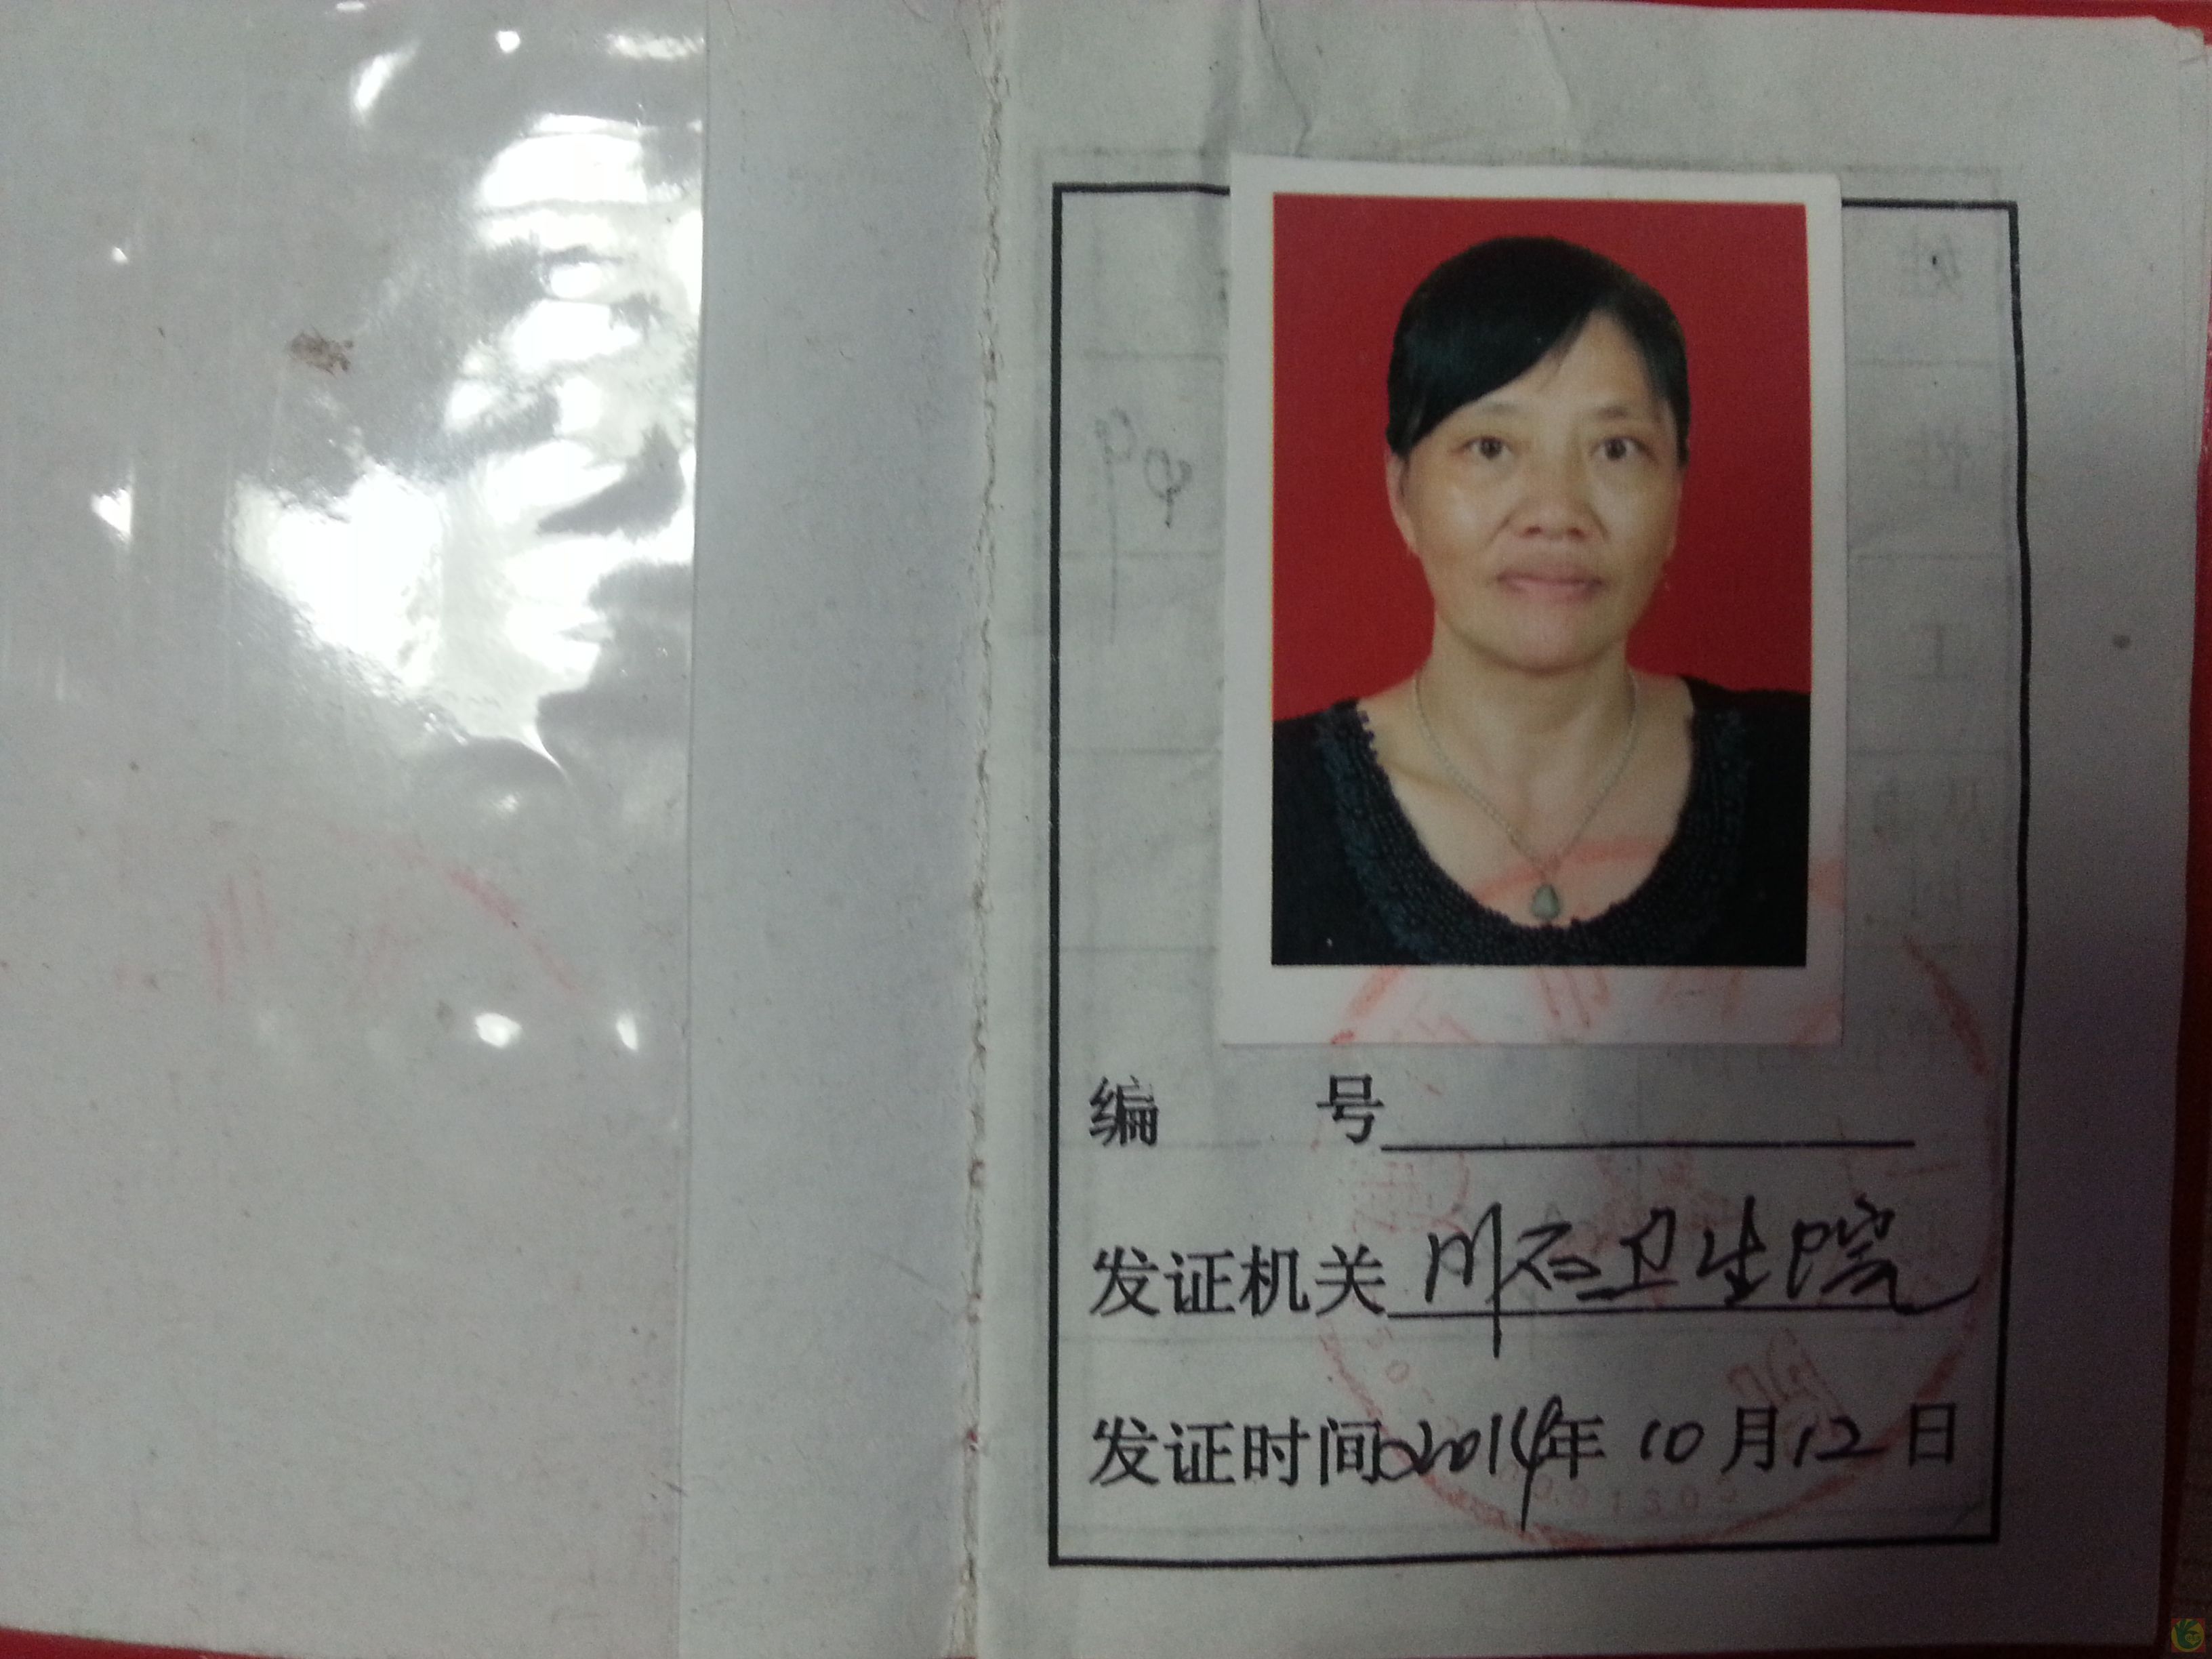 编 号
发证机关 川石卫生院
发证时间 2014年 10 月 12 日